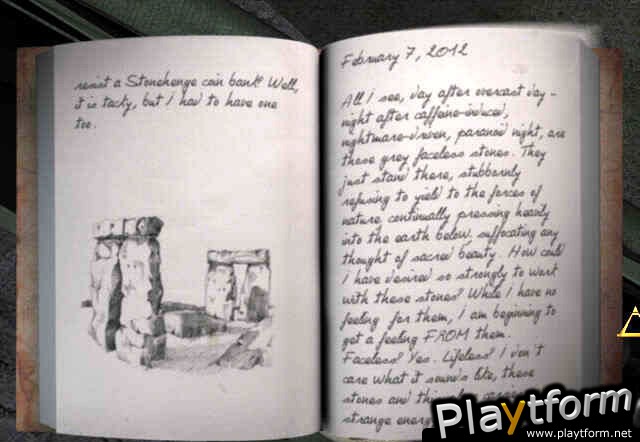 resist a Stonehenge coin bank? Well,
it is tacky, but I had to have one
too.
February 7, 2012
All I see, day after overcast day -
night after caffeine-induced,
nightmare-driven, paranoid night, are
these grey faceless stones. They
just stand there, stubbornly
refusing to yield to the forces of
nature continually pressing heavily
into the earth below, suffocating any
thought of sacred beauty. How could
I have desired so strongly to work
with these stones? While I have no
feeling for them, I am beginning to
get a feeling FROM them.
Faceless? Yes. Lifeless? I don't
care what it sounds like, these
stones and this
strange energ
Playtform
www.playtform.net